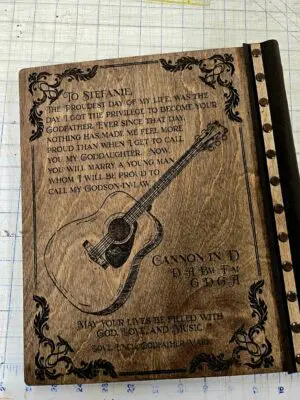 To Stefanie,
The proudest day of my life was the
day I got the privilege to become your
Godfather. Ever since that day,
nothing has made me feel more
proud than when I get to call
you my Goddaughter. Now,
you will marry a young man
whom I will be proud to
call my Godson-in-law.
Cannon in D
D A Bm
G D G A
May your lives be filled with
God, Love, and Music.
Love, Uncle/Godfather Mark